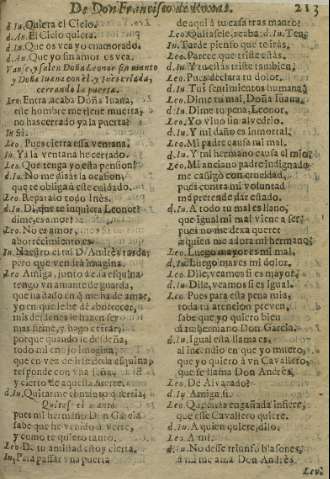 De Don Francisco de Rojas. 213
d. Iu. Quiera el Cielo.
d. An. El Cielo quiera.
d. Iu. Que os vea yo enamorado.
d. An. Que yo sin amor os vea.
Vase, y salen Doña Leonor sin manto
y Doña Iuana con èl, y Ines criada,
cerrando la puerta.
Leo. Entra acaba Doña Iuana,
me hombre me tiene muerta,
no has cerrado ya la puerta?
In. Si.
Leo. Pues cierra essa ventana.
In. Ya la ventana he cerrado.
Iu. Que tenga yo esta pension?
d. Iu. No me diràs la ocasion,
que te obliga à este cuidado.
Leo. Reparalo todo Ines.
d. Iu. Di, que te inquieta Leonor?
dime, es amor?
Leo. No es amor,
aborrecimiento es.
In. Nuestro està D. Andrès
pero que ven imagina.
Leo. Amiga, junto à essa esquina
tengo vn amante de guarda,
que ha dado en que me ha de amar,
y yo en que le he de aborrecer,
mis desdenes le hazen ser
mas firme, y hago
porque quando le desdeña,
todo mi enojo
que en vez de la esquina
responde con vna
y cierto de aquesta suerte.
d. Iu. Quitarme el manto querria;
Quitase el manto.
pues mi hermano D. Garcia
sabe que he venido à verte,
y como te quiero tanto.
Leo. De tu amistad estoy cierta,
In. Para passar vna puerta
de aqui à tu casa tras manto?
Leo. Quitasele, acaba: d. Iu. Ten,
In. Tarde pienso que te iràs,
Leo. Parece que triste estàs,
d. Iu. Y tu estàs triste tambien;
Leo. Pues declara tu dolor.
d. Iu. Tus sentimientos humana;
Leo. Dime tu mal, Doña Iuana,
d. Iu. Dime tu pena, Leonor,
Leo. Yo vluo sin alvedrio.
d. Iu. Y mi daño es inmortal,
Leo. Mi padre causa mi mal.
d. Iu. Y mi hermano causa el mio,
Leo. Mi anciano padre indignado
me castigò con crueldad,
pues contra mi voluntad
me pretende dàr estado.
d. Iu. A todo tu mal es llano,
que igual mi mal viene à ser;
pues no me dexa querer
à quien me adora mi hermano?
Leo. Luego mayor es mi mal,
d. Iu. Luego mayor es mi dolor,
Leo. Dile, veamos si es mayor,
d. Iu. Dile, veamos si es igual.
Leo. Pues para esta pena mia,
toda tu atencion preven,
sabe que yo quiero bien
à tu hermano Don Garcia.
d. Iu. Igual essa llama es,
al incendio en que yo muero,
que yo quiero à vn Cavallero,
que se llama Don Andrès.
Leo. De Alvarado?
d. Iu. Amiga, si.
Leo. Que mas engañada infiere,
que esse Cavallero quiere.
d. Iu. A quien quiere, dilo.
Leo. A mi.
d. Iu. No desse triunfo blasones,
à mi me ama Don Andrès.
Leo.